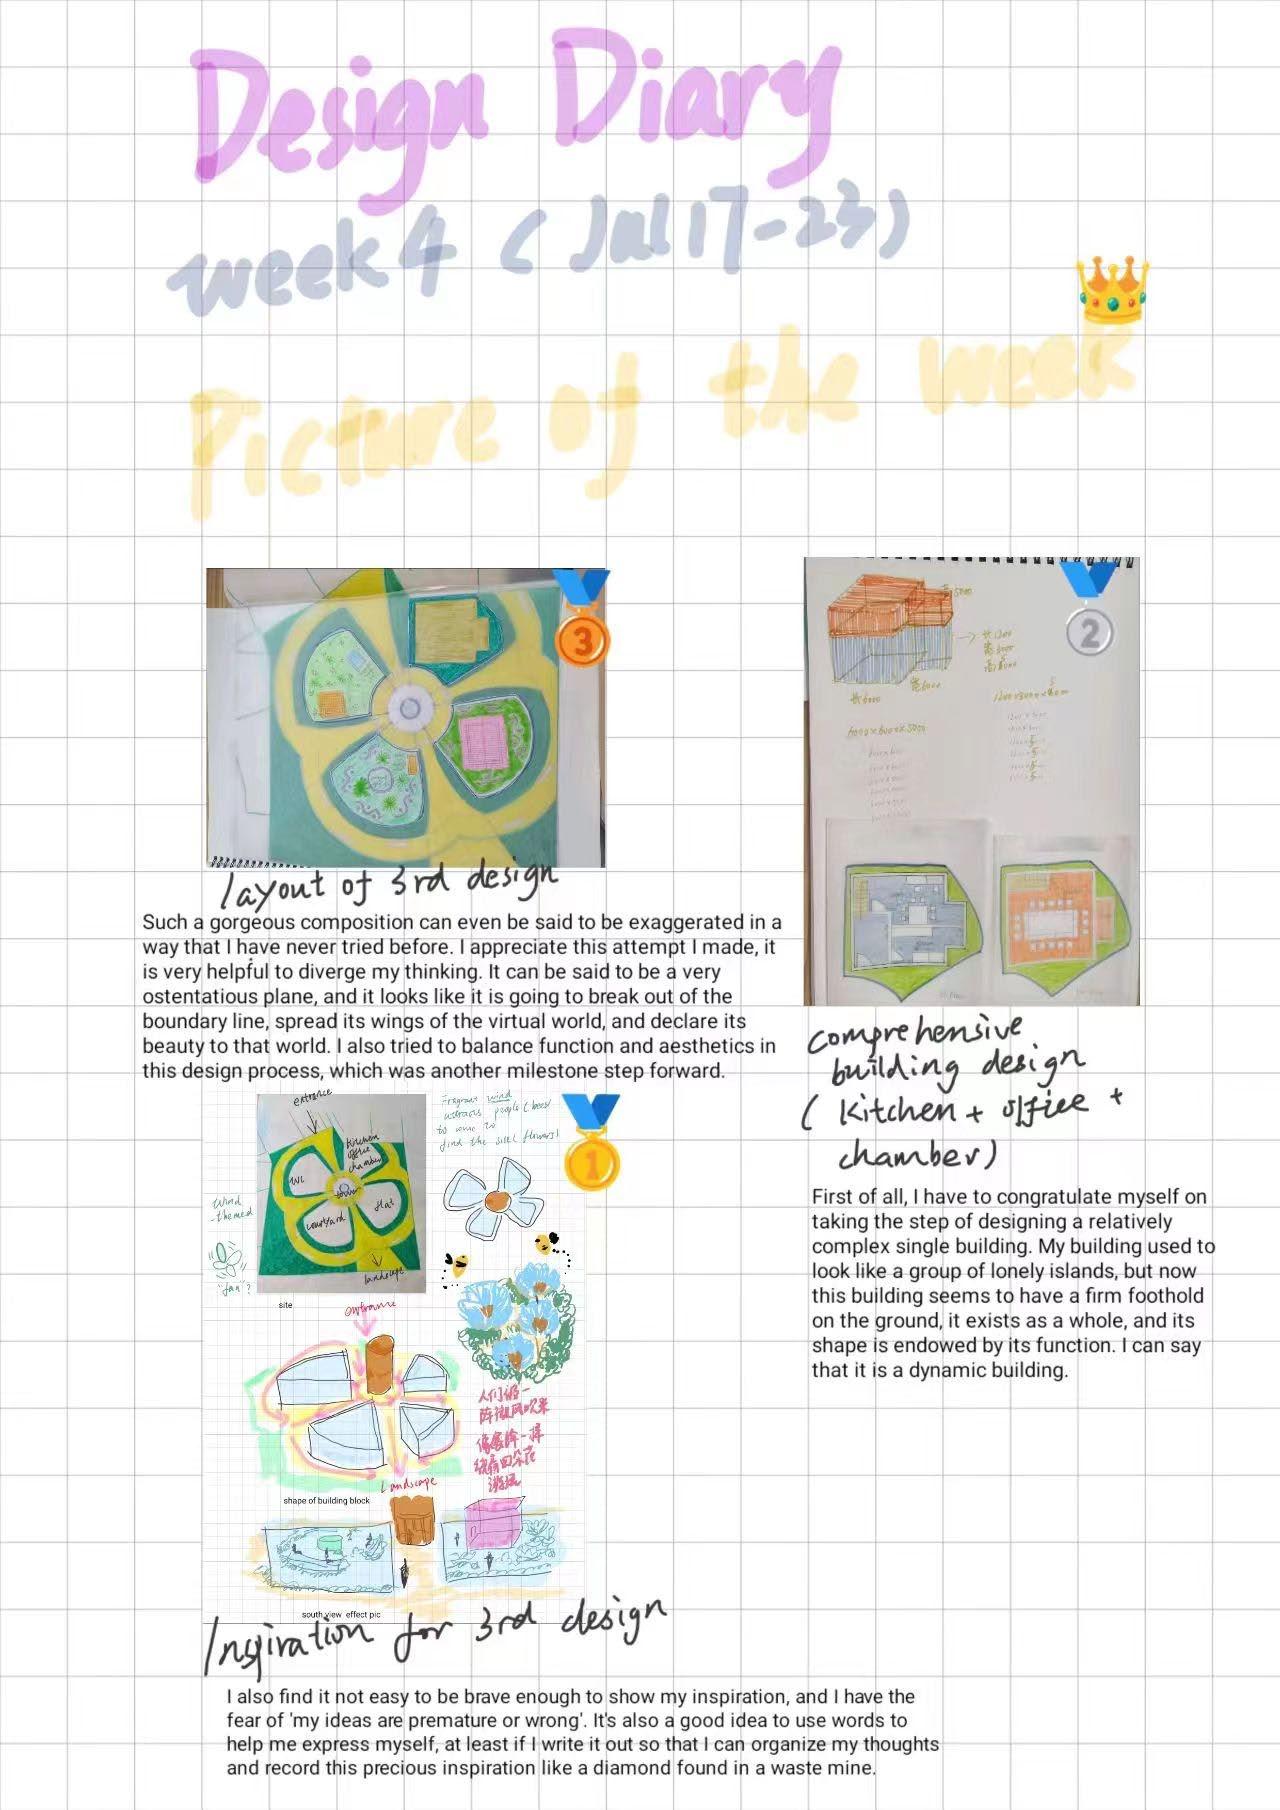 Design Diary
week 4 (Jul 17-23)
Picture of the week
3
layout of 3rd design
Such a gorgeous composition can even be said to be exaggerated in a
way that I have never tried before. I appreciate this attempt I made, it
is very helpful to diverge my thinking. It can be said to be a very
ostentatious plane, and it looks like it is going to break out of the
boundary line, spread its wings of the virtual world, and declare its
beauty to that world. I also tried to balance function and aesthetics in
this design process, which was another milestone step forward.
2
6000×6000×5000
comprehensive
building design
( kitchen + office +
chamber)
First of all, I have to congratulate myself on
taking the step of designing a relatively
complex single building. My building used to
look like a group of lonely islands, but now
this building seems to have a firm foothold
on the ground, it exists as a whole, and its
shape is endowed by its function. I can say
that it is a dynamic building.
1
entrance
kitchen
office
chamber
WC
tower
flat
courtyard
landscape
Fragrant wind
attracts people (bees)
to come to
find the site (flowers)
wind
-themed
"fan"?
site
entrance
人们像一
阵微风吹来
像蜜蜂一样
绕着四朵花
游玩
Landscape
shape of building block
south view effect pic
Inspiration for 3rd design
I also find it not easy to be brave enough to show my inspiration, and I have the
fear of 'my ideas are premature or wrong'. It's also a good idea to use words to
help me express myself, at least if I write it out so that I can organize my thoughts
and record this precious inspiration like a diamond found in a waste mine.